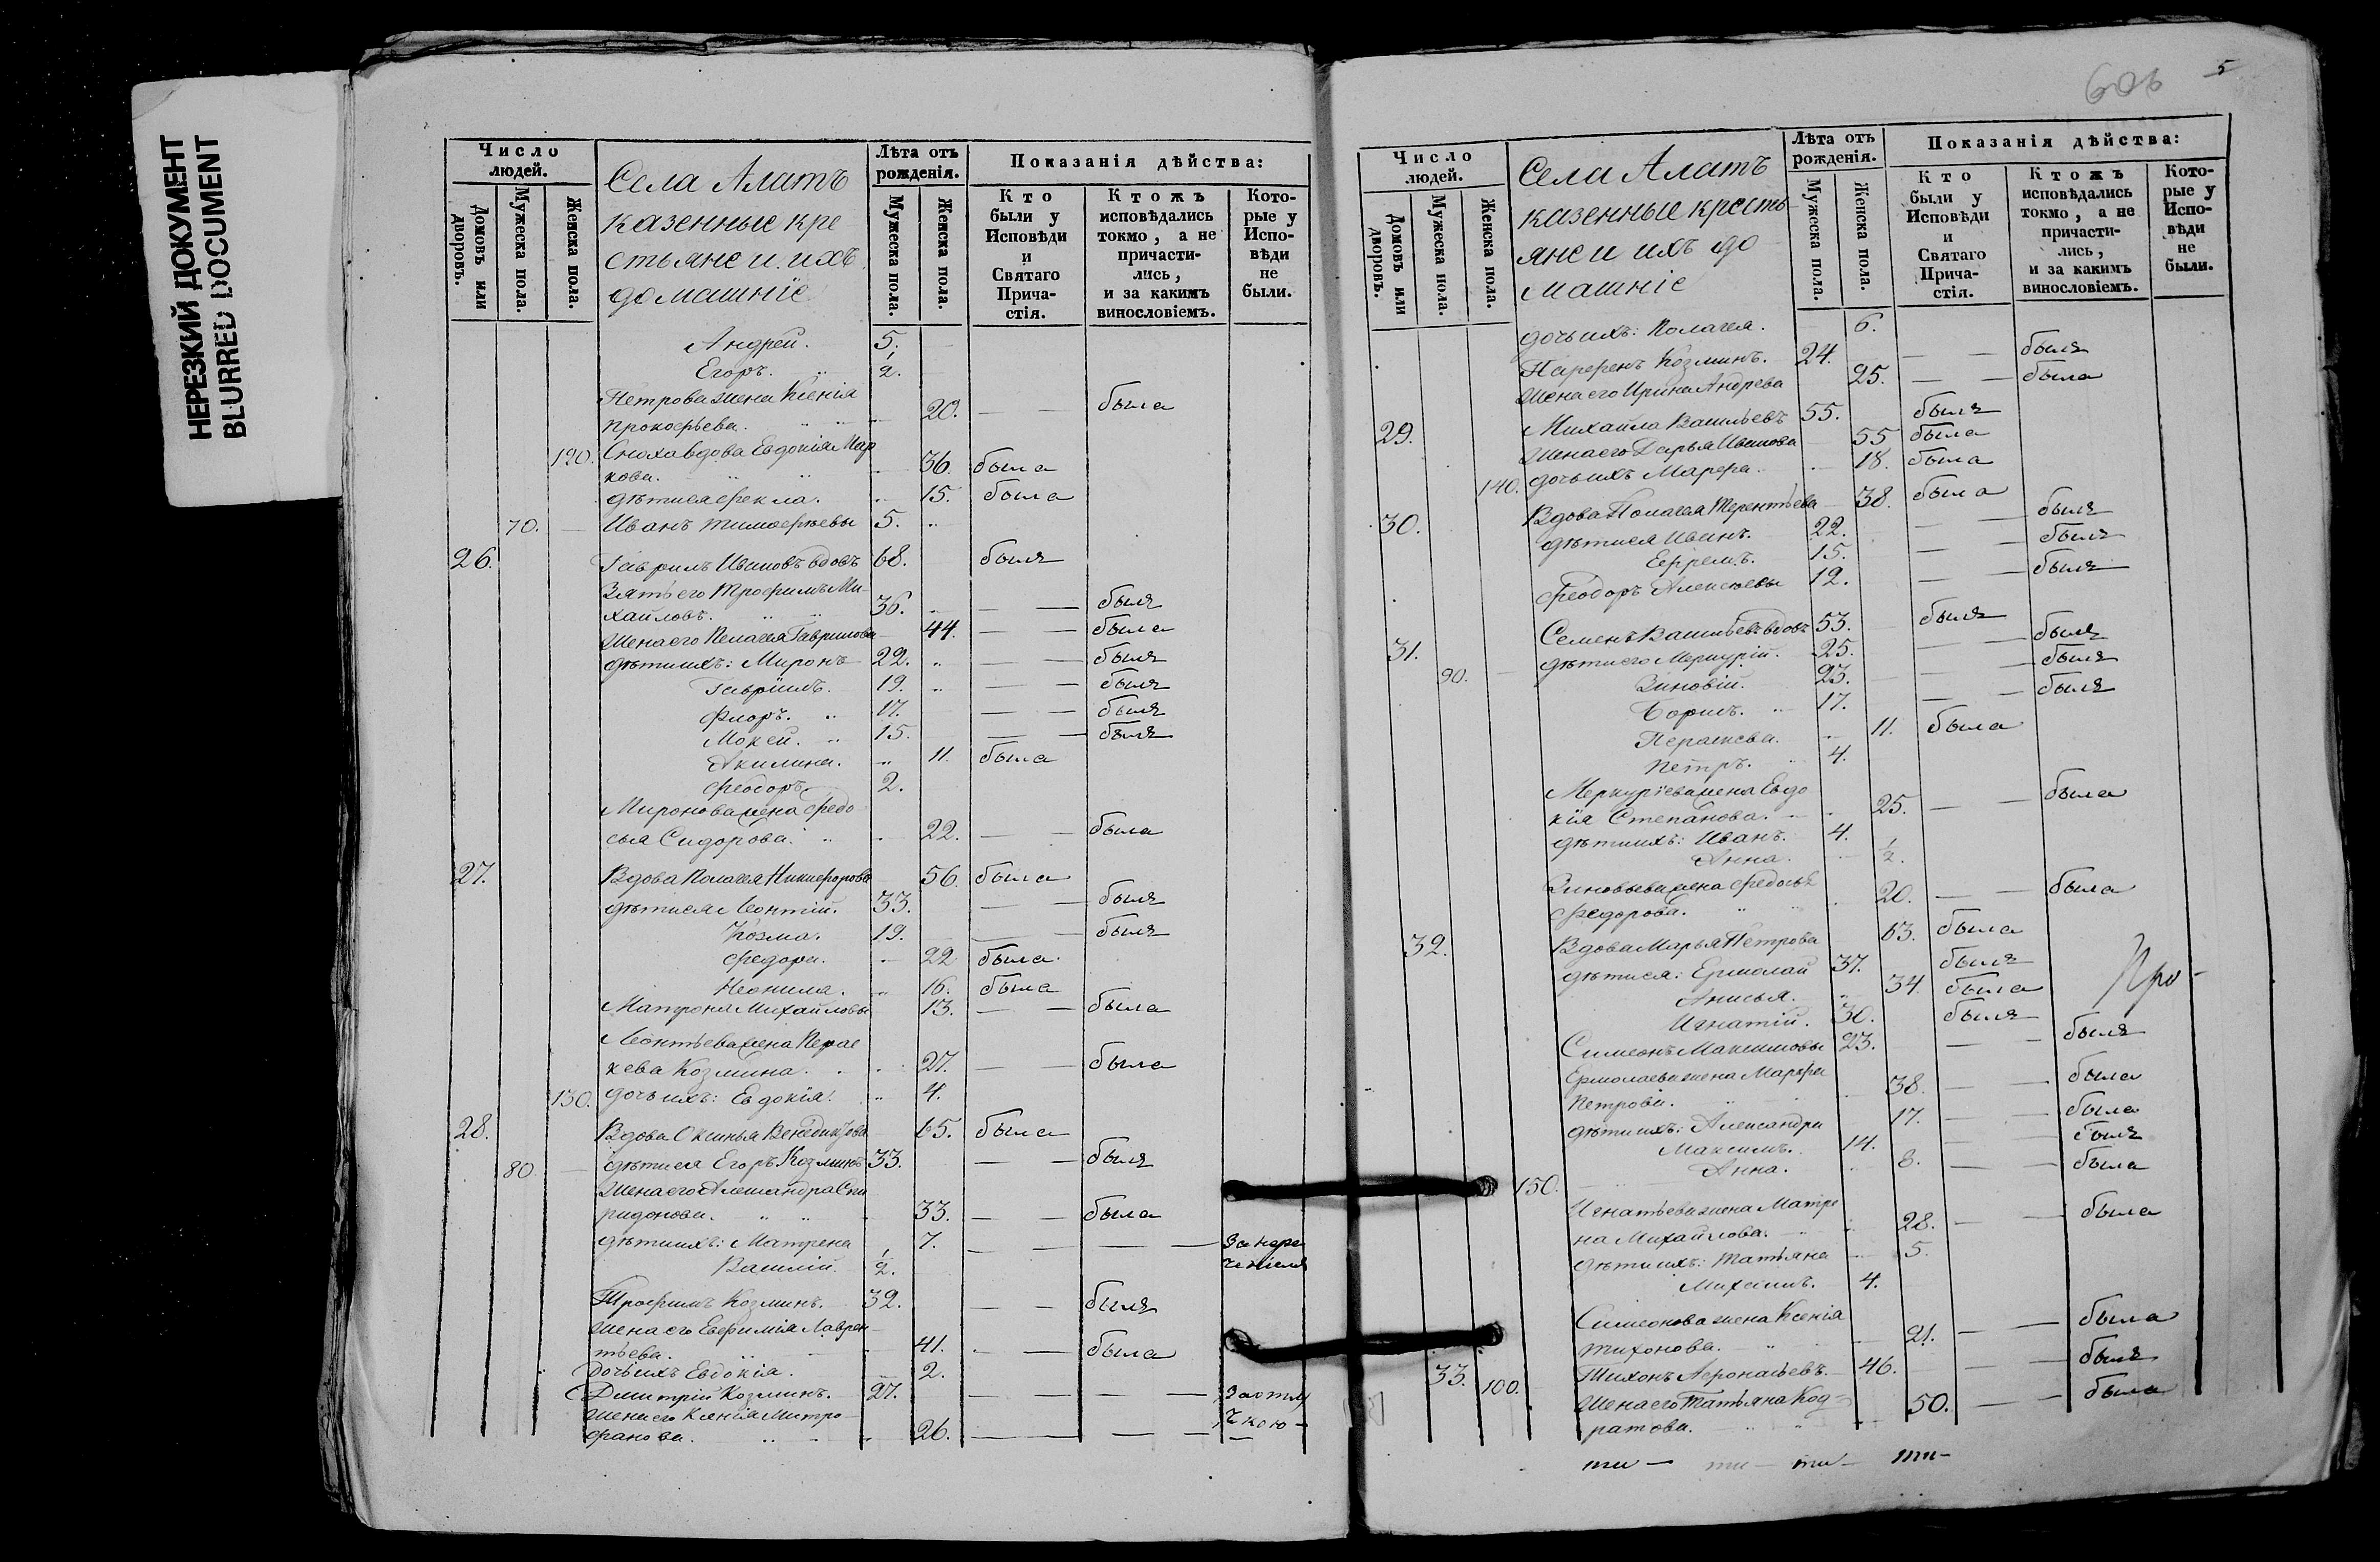 НЕРЕЗКИЙ ДОКУМЕНТ
BLURRED DOCUMENT
Число людей.
Домовъ или дворовъ.
Мужеска пола.
Женска пола.
Села Алатъ
казенные кре
стьяне и ихъ
домашніе
Лѣта отъ рожденія.
Мужеска пола.
Женска пола.
Показанія дѣйства:
Кто были у Исповѣди и Святаго Прича-стія.
Ктожъ исповѣдались токмо, а не причасти-лись, и за какимъ винословіемъ.
Кото-рые у Испо-вѣди не были.
Андрей. 5.
Егоръ. 1/2.
Петрова жена Ксенія
Прокофьева. 20. — — была
120. Сноха вдова Евдокія Мар
кова. 36. была
дѣти ея Фекла. 15. была
70. — Иванъ Тимофѣевы 5.
26. Гаврилъ Ивановъ вдовъ 68. былъ
Зять его Трофимъ Ми-
хайловъ. 36. — — былъ
Жена его Пелагея Гаврилова 44. — — была
дѣти ихъ: Миронъ 22. — — былъ
Гавріилъ. 19. — — былъ
Флоръ. 17. — — былъ
Мокей. 15. — — былъ
Акилина. 11. была
Феодоръ. 2.
Миронова жена Федо
сья Сидорова. 22. — — была
27. Вдова Полагея Никифорова 56. была
дѣти ея Леонтій. 33. — — былъ
Козма. 19. — — былъ
Федора. 22 была
Неонила. 16. была
Матрона Михайловы 13. — — была
Леонтьева жена Парас
кева Козмина. 27. — — была
130. дочь ихъ: Евдокія. 4.
28. Вдова Оксинья Венедиктова 65. была
80 — дѣти ея Егоръ Козминъ 33. — — былъ
Жена его Александра Спи
ридонова. 33. — — была
дѣти ихъ: Матрена 7. — — — — за нера
Василій. 1/2. чениемъ
Трофимъ Козминъ. 32. — — былъ
Жена его Евфимія Лаврен
тьева. 41. — — была
дочь ихъ Евдокія. 2.
Дмитрій Козминъ. 27. — — — — за отлу
Жена его Ксенія Митро-
фанова. 26. — — — — чкою —
606 5
Число людей.
Домовъ или дворовъ.
Мужеска пола.
Женска пола.
Села Алатъ
казенные кресть
яне и ихъ до
машніе
Лѣта отъ рожденія.
Мужеска пола.
Женска пола.
Показанія дѣйства:
Кто были у Исповѣди и Святаго Прича-стія.
Ктожъ исповѣдались токмо, а не причасти-лись, и за какимъ винословіемъ.
Кото-рые у Испо-вѣди не были.
дочь ихъ: Полагея. 6.
Парфенъ Козминъ. 24. — — былъ
Жена его Ирина Андрева 25. — — была
29. Михайла Васильевъ 55. былъ
Жена его Дарья Иванова 55 была
140. дочь ихъ Марфа. 18. была
30. Вдова Полагея Терентьева 38. была
дѣти ея Иванъ. 22. — — былъ
Ефремъ. 15. — — былъ
Феодоръ Алексѣевы 12. — — былъ
31. Семенъ Васильевъ вдовъ 53. былъ
дѣти его Меркурій. 25. — — былъ
90. — Зиновій. 23. — — былъ
Борисъ. 17. — — былъ
Параскева. 11. была
Петръ. 4.
Меркуріева жена Евдо
кія Степанова. 25. — — была
дѣти ихъ: Иванъ. 4.
Анна. 1/2.
Зиновьева жена Федосья
Федорова. 20. — — была
32. Вдова Марья Петрова 63. была
дѣти ея: Ермолай 37. былъ
Анисья. 34. была
Игнатій. 30. былъ
Симеонъ Максимовы 23. — — былъ
Ермолаева жена Марфа
Петрова. 38. — — была
дѣти ихъ: Александра 17. — — была
Максимъ. 14. — — былъ
150. Анна. 8. — — была
Игнатьева жена Матре
на Михайлова. 28. — — была
дѣти ихъ: Татьяна 5.
Михаилъ. 4.
Симеонова жена Ксенія
Тихонова. 21. — — была
33. 100. Тихонъ Афонасьевъ. 46. — — былъ
Жена его Татьяна Код-
ратова. 50. — — была
Про-
ти — ти — ти — ти —